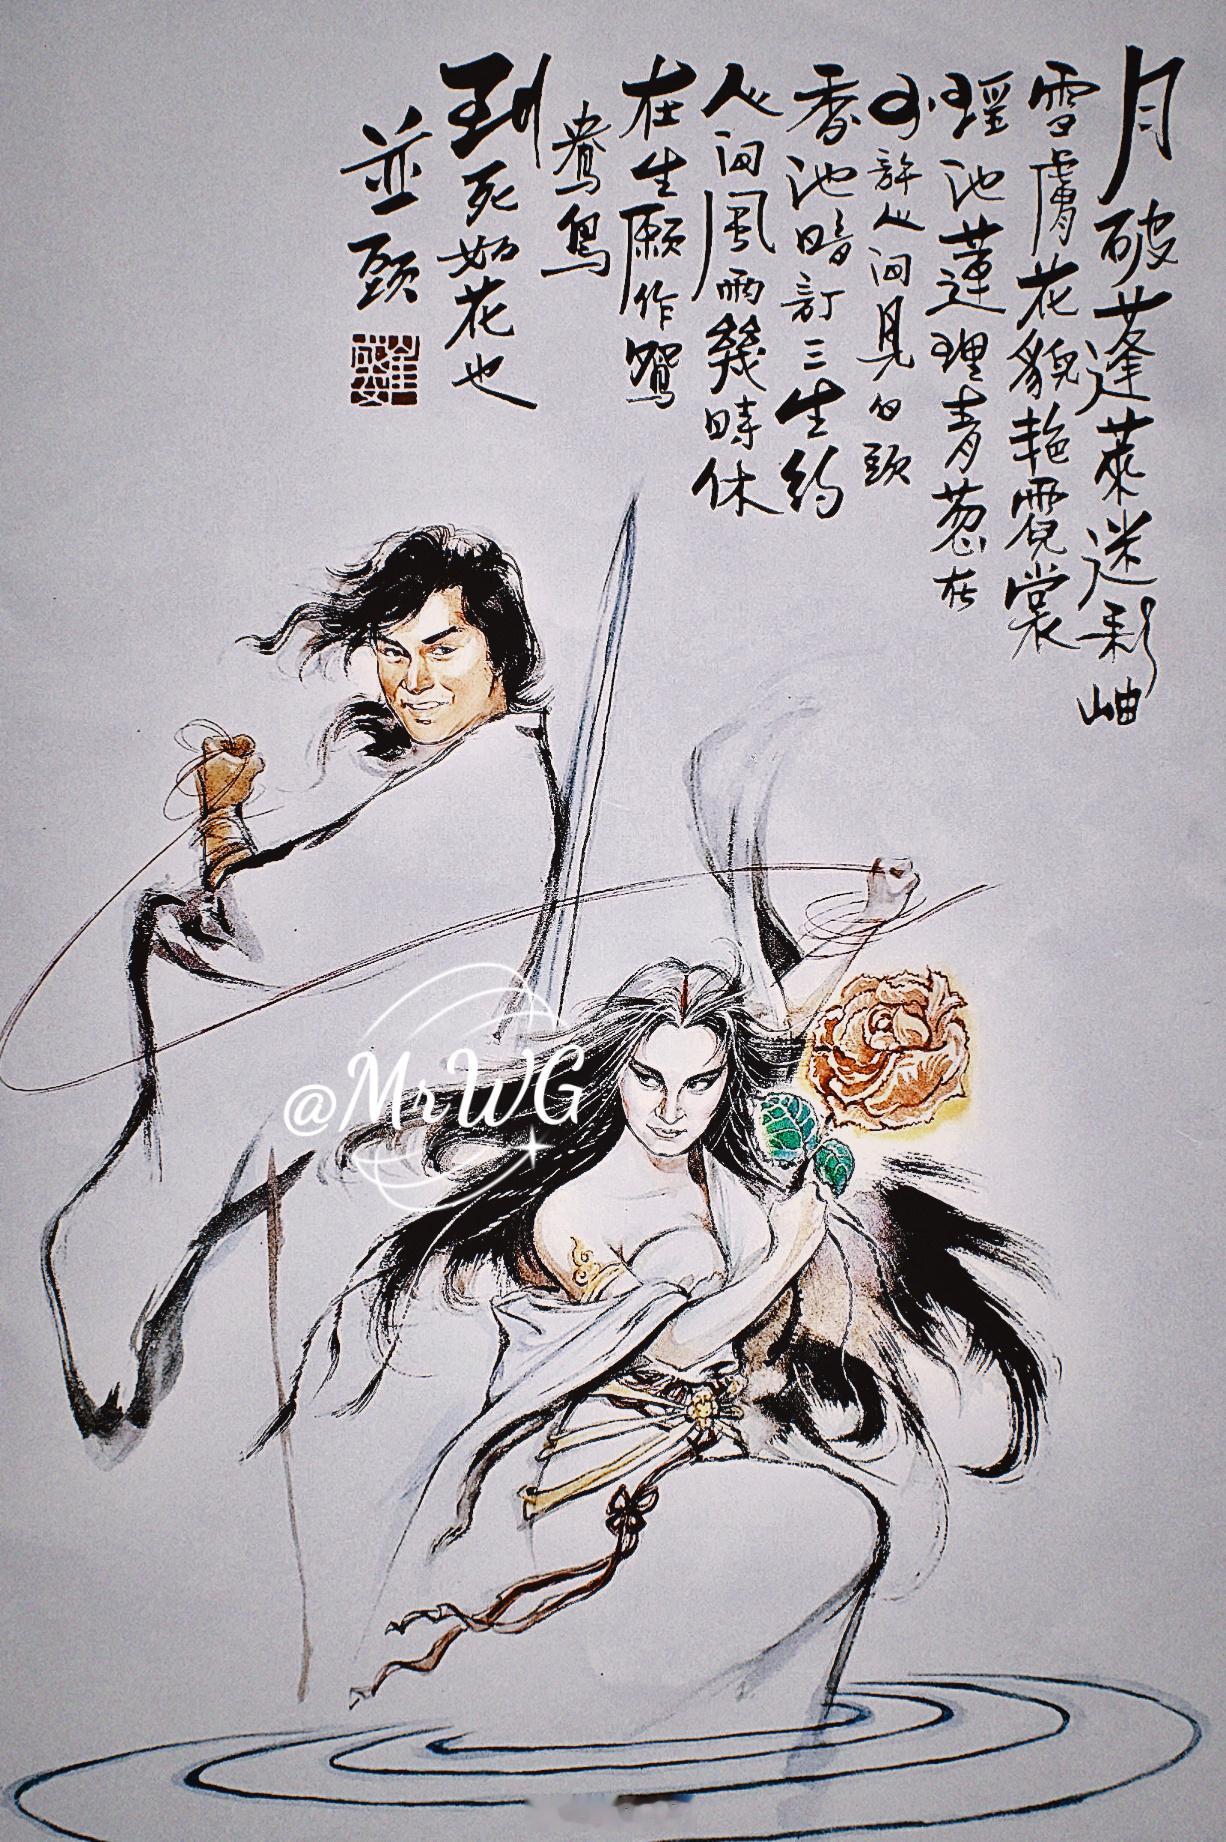 月破蓬萊迷彩岫
雪膚花貌艳霓裳
瑶池蓮理青葱在
可許人间見白頭
香池暗訂三生約
人间風雨幾時休
在生願作鴛
鴦鳥
到死如花也
並頭
@MrWG